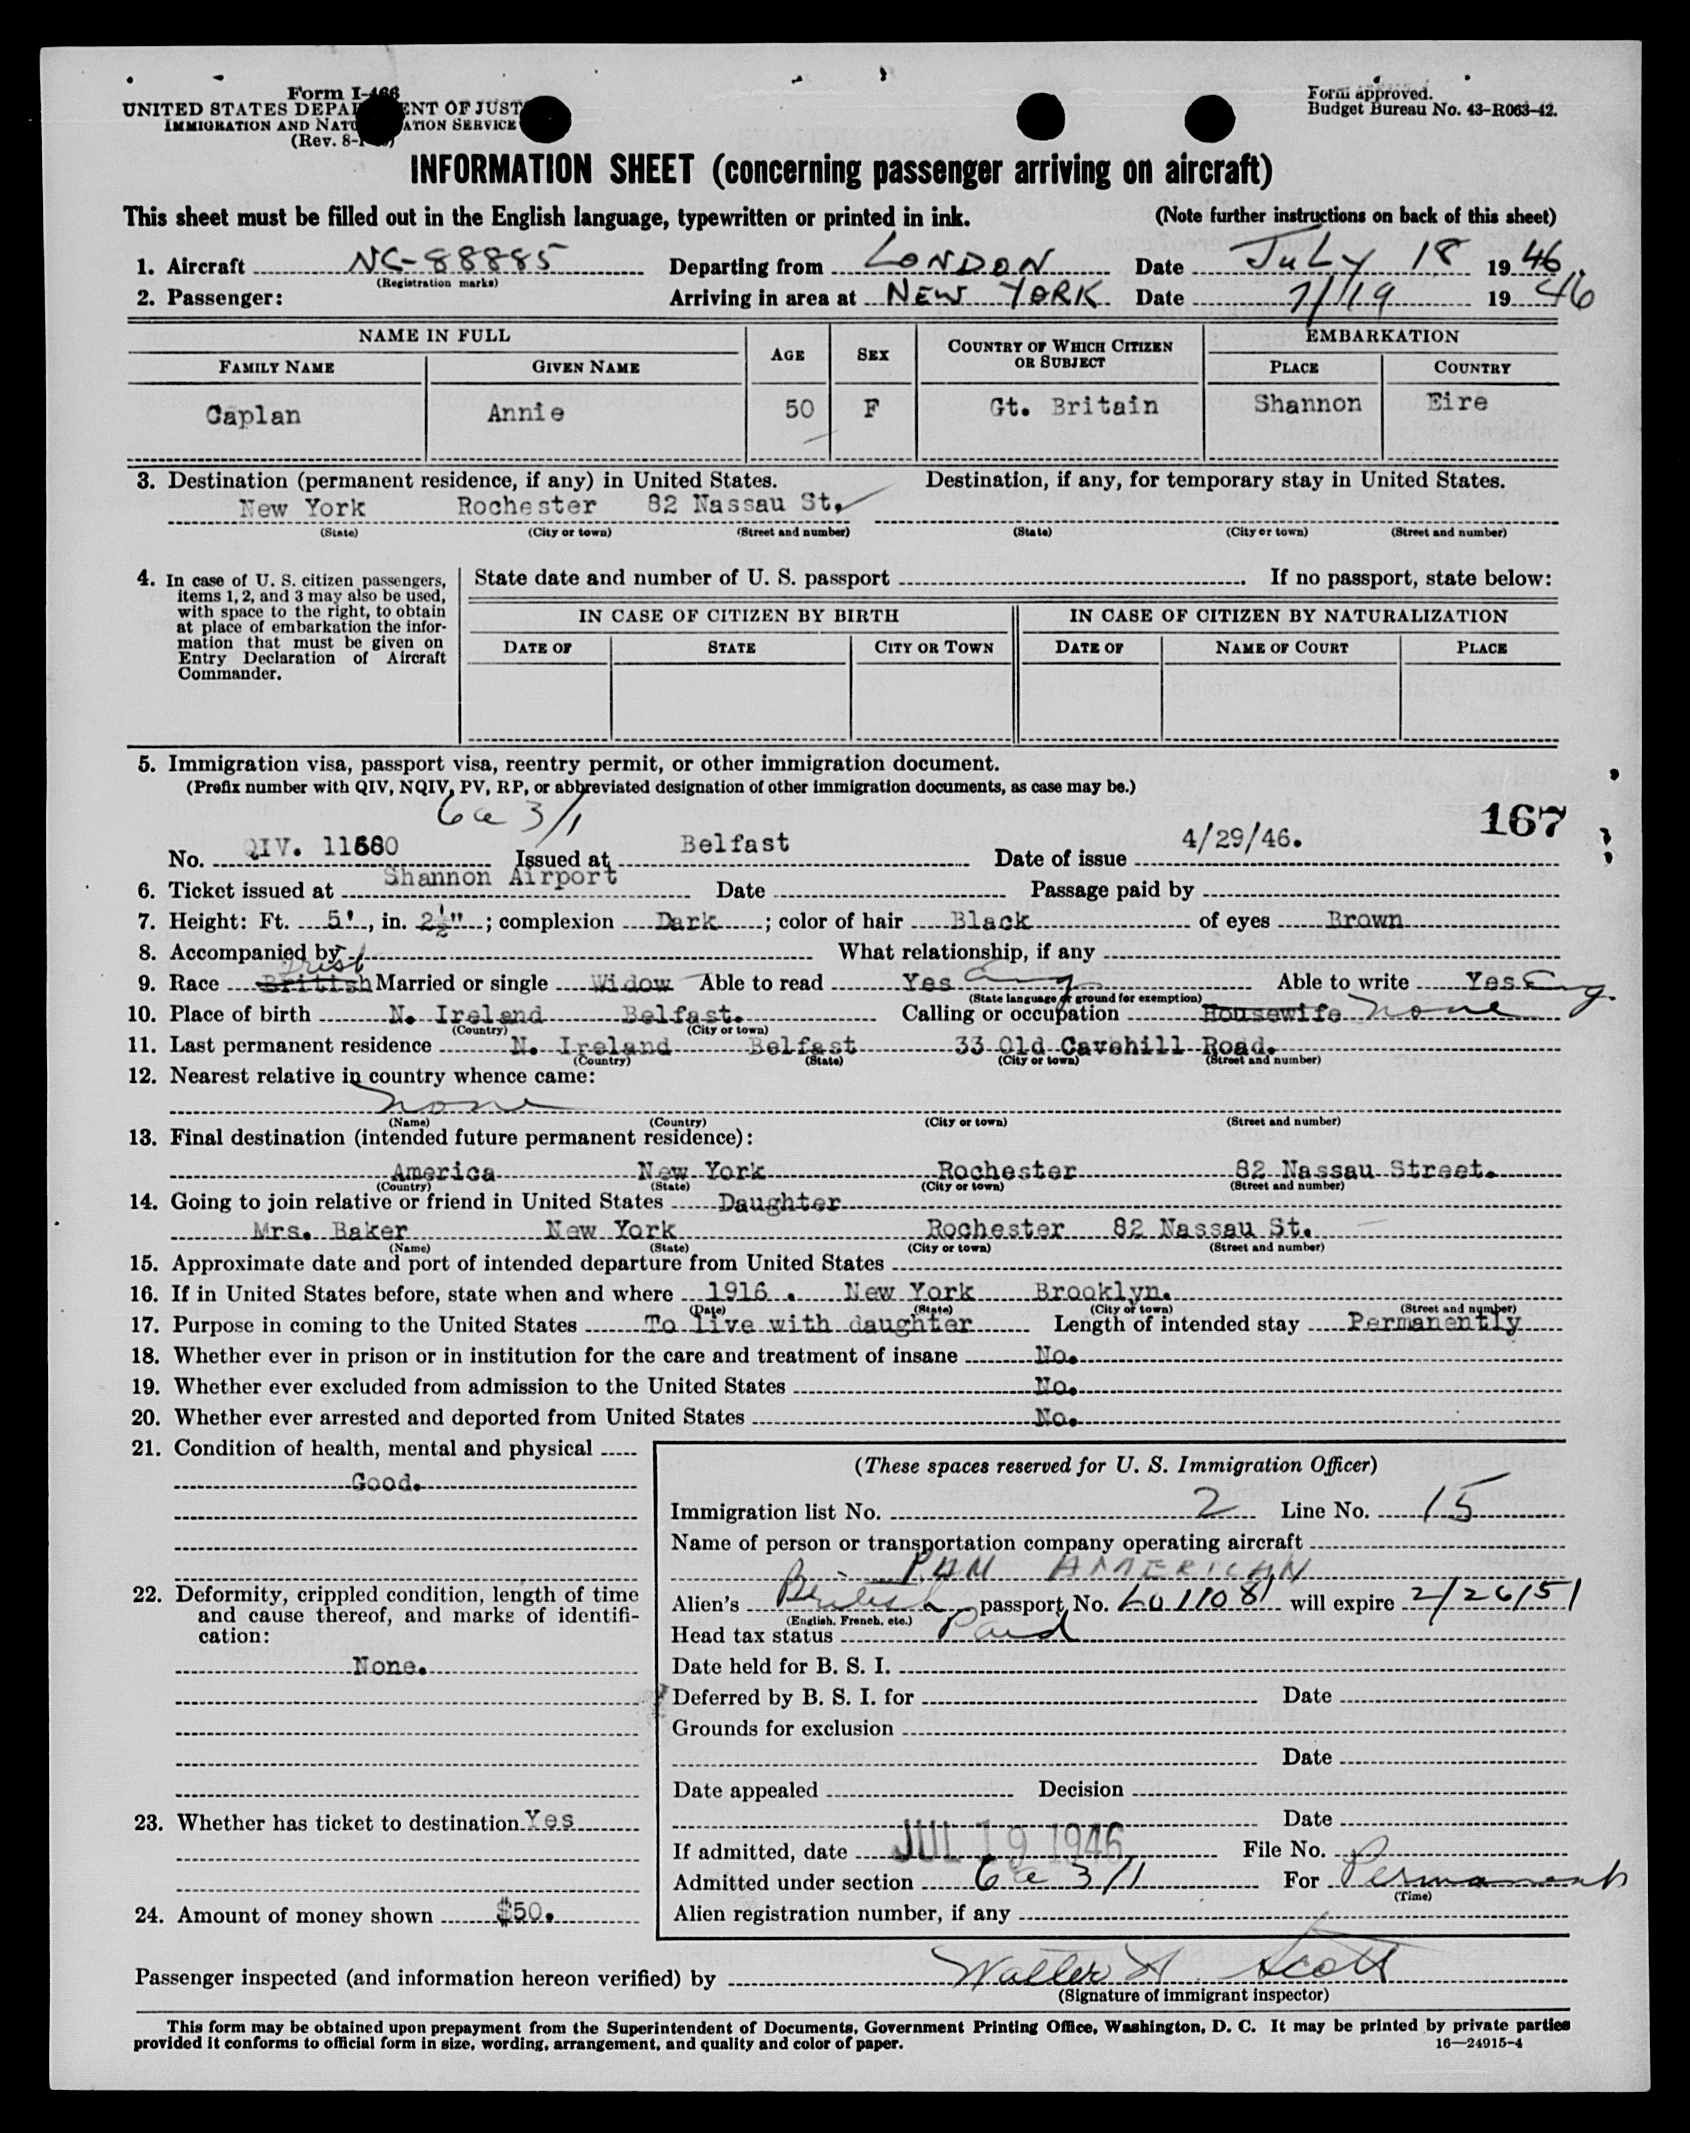 Form I-466
UNITED STATES DEPARTMENT OF JUSTICE
IMMIGRATION AND NATURALIZATION SERVICE
(Rev. 8-
Form approved.
Budget Bureau No. 43-R063-42.
INFORMATION SHEET (concerning passenger arriving on aircraft)
This sheet must be filled out in the English language, typewritten or printed in ink. (Note further instructions on back of this sheet)
1. Aircraft NC-88885 Departing from LONDON Date JULY 18 1946.
(Registration marks)
2. Passenger: Arriving in area at NEW YORK Date 7/19 1946
NAME IN FULL AGE SEX COUNTRY OF WHICH CITIZEN OR SUBJECT EMBARKATION
FAMILY NAME GIVEN NAME PLACE COUNTRY
Caplan Annie 50 F Gt. Britain Shannon Eire
3. Destination (permanent residence, if any) in United States. Destination, if any, for temporary stay in United States.
New York Rochester 82 Nassau St.
(State) (City or town) (Street and number) (State) (City or town) (Street and number)
4. In case of U. S. citizen passengers,
items 1, 2, and 3 may also be used,
with space to the right, to obtain
at place of embarkation the infor-
mation that must be given on
Entry Declaration of Aircraft
Commander.
State date and number of U. S. passport . If no passport, state below:
IN CASE OF CITIZEN BY BIRTH IN CASE OF CITIZEN BY NATURALIZATION
DATE OF STATE CITY OR TOWN DATE OF NAME OF COURT PLACE
5. Immigration visa, passport visa, reentry permit, or other immigration document.
(Prefix number with QIV, NQIV, PV, RP, or abbreviated designation of other immigration documents, as case may be.)
6a 3/1
167
No. QIV. 11680 Issued at Belfast Date of issue 4/29/46.
6. Ticket issued at Shannon Airport Date Passage paid by
7. Height: Ft. 5', in. 2½"; complexion Dark; color of hair Black of eyes Brown
8. Accompanied by What relationship, if any
Irish
9. Race British Married or single Widow Able to read Yes Eng Able to write Yes Eng.
(State language or ground for exemption)
10. Place of birth N. Ireland Belfast. Calling or occupation Housewife none
(Country) (City or town)
11. Last permanent residence N. Ireland Belfast 33 Old Cavehill Road.
(Country) (State) (City or town) (Street and number)
12. Nearest relative in country whence came:
none
(Name) (Country) (City or town) (Street and number)
13. Final destination (intended future permanent residence):
America New York Rochester 82 Nassau Street.
(Country) (State) (City or town) (Street and number)
14. Going to join relative or friend in United States Daughter
Mrs. Baker New York Rochester 82 Nassau St.
(Name) (State) (City or town) (Street and number)
15. Approximate date and port of intended departure from United States
16. If in United States before, state when and where 1916. New York Brooklyn.
(Date) (State) (City or town) (Street and number)
17. Purpose in coming to the United States To live with daughter Length of intended stay Permanently
18. Whether ever in prison or in institution for the care and treatment of insane No.
19. Whether ever excluded from admission to the United States No.
20. Whether ever arrested and deported from United States No.
21. Condition of health, mental and physical
Good.
22. Deformity, crippled condition, length of time
and cause thereof, and marks of identifi-
cation:
None.
23. Whether has ticket to destination Yes
24. Amount of money shown $50.
(These spaces reserved for U. S. Immigration Officer)
Immigration list No. 2 Line No. 15
Name of person or transportation company operating aircraft
PAN AMERICAN
Alien's British passport No. LU11081 will expire 2/26/51
(English, French, etc.)
Head tax status Paid
Date held for B. S. I.
Deferred by B. S. I. for Date
Grounds for exclusion
Date
Date appealed Decision
Date
If admitted, date JUL 19 1946 File No.
Admitted under section 6a 3/1 For Permanent
(Time)
Alien registration number, if any
Passenger inspected (and information hereon verified) by Walter H. Scott
(Signature of immigrant inspector)
This form may be obtained upon prepayment from the Superintendent of Documents, Government Printing Office, Washington, D. C. It may be printed by private parties
provided it conforms to official form in size, wording, arrangement, and quality and color of paper. 16—24915-4